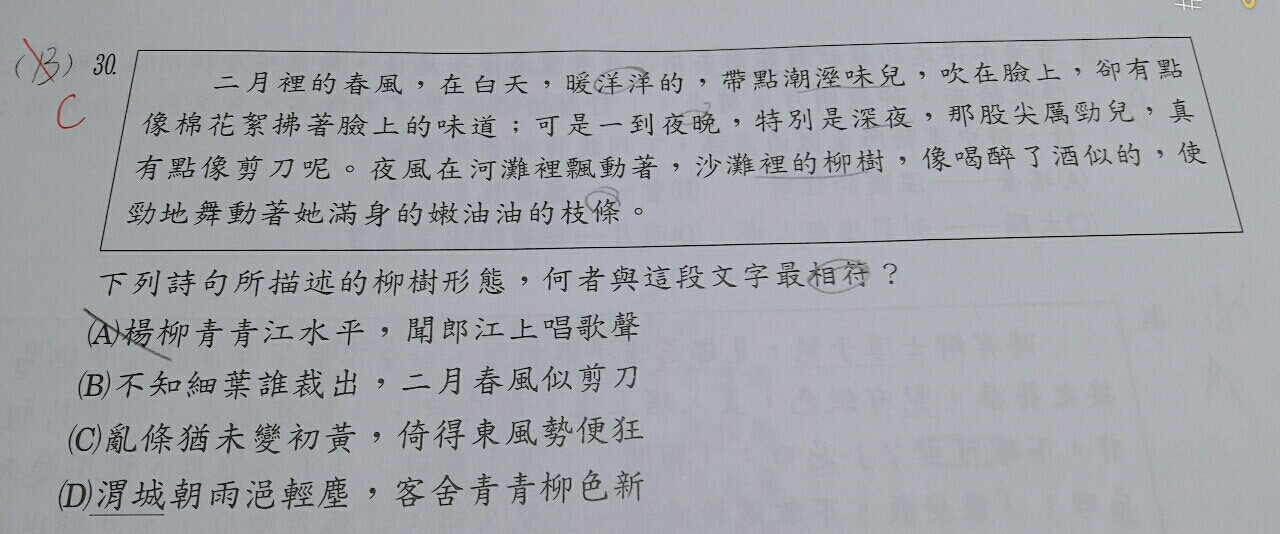 (B) 30.
C
二月裡的春風，在白天，暖洋洋的，帶點潮溼味兒，吹在臉上，卻有點
像棉花絮拂著臉上的味道；可是一到夜晚，特別是深夜，那股尖厲勁兒，真
有點像剪刀呢。夜風在河灘裡飄動著，沙灘裡的柳樹，像喝醉了酒似的，使
勁地舞動著她滿身的嫩油油的枝條。
下列詩句所描述的柳樹形態，何者與這段文字最相符？
(A)楊柳青青江水平，聞郎江上唱歌聲
(B)不知細葉誰裁出，二月春風似剪刀
(C)亂條猶未變初黃，倚得東風勢便狂
(D)渭城朝雨浥輕塵，客舍青青柳色新